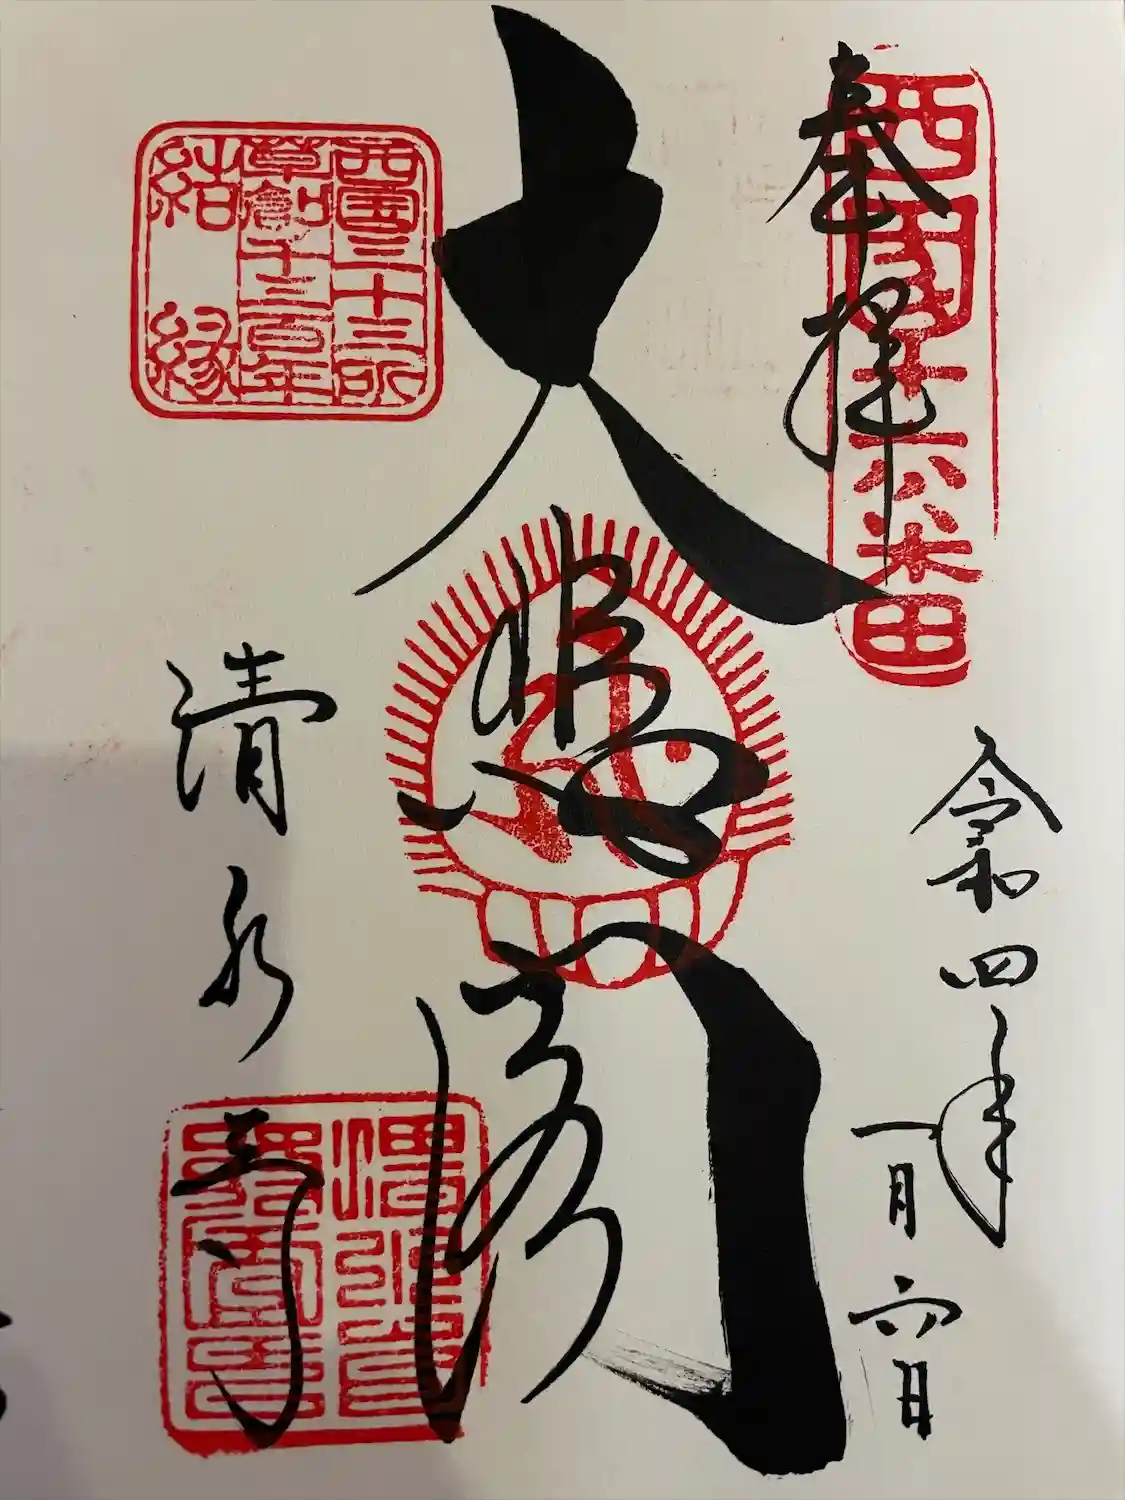 奉拝
西国十六番
令和四年
一月六日
大悲閣
清水寺
西國三十三所
草創千三百年
結縁